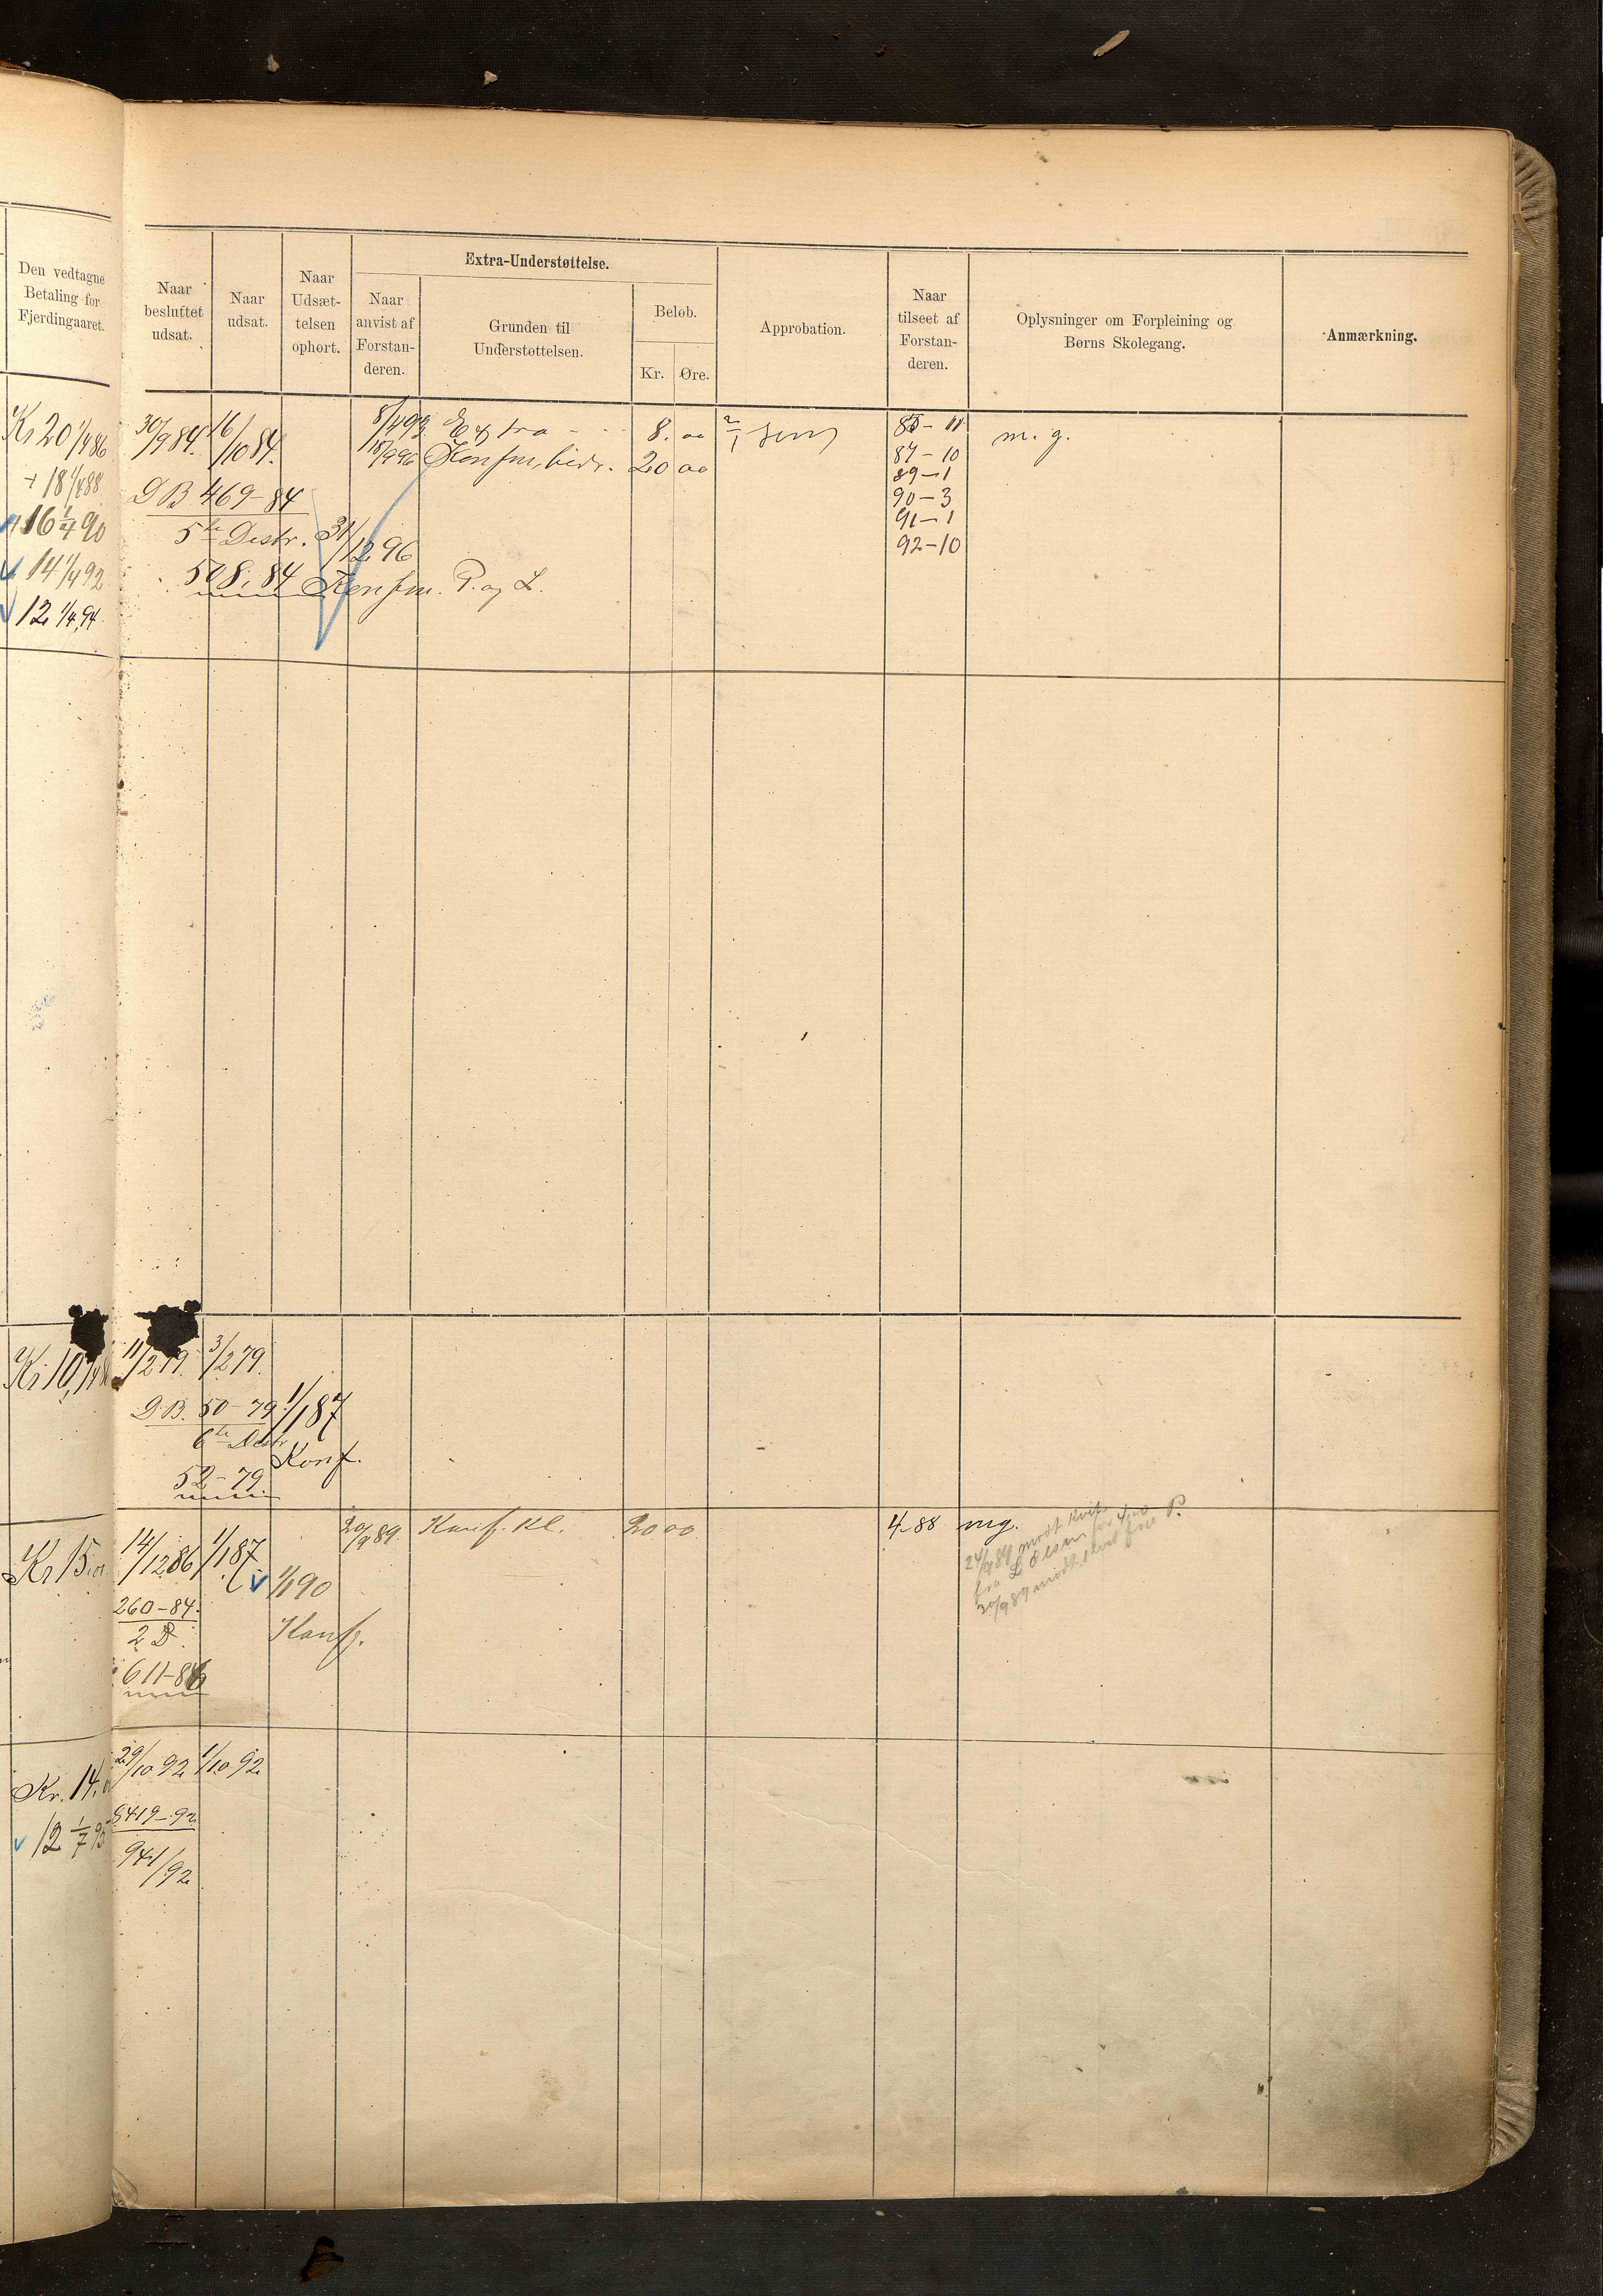 Den vedtagne
Betaling for
Fjerdingaaret.
Naar
besluttet
udsat.
Naar
udsat.
Naar
Udsæt-
telsen
ophørt.
Extra-Understøttelse.
Naar
anvist af
Forstan-
deren.
Grunden til
Understøttelsen.
Beløb.
Kr. Øre.
Approbation.
Naar
tilseet af
Forstan-
deren.
Oplysninger om Forpleining og
Børns Skolegang.
Anmærkning.
Kr 20 1/4 86
+ 18 1/4 88
16 1/4 90
14 1/4 92
12 1/4 94
30/9 84. 16/10 84.
D B 469-84
5te Distr.
508. 84
31/12 96
Konfm. P. og L.
8/4 93 Extra - 8. 00
18/9 96 Konfm. bidr. 20 00
85-11 m. g.
87-10
89-1
90-3
91-1
92-10
Kr 10,
11/2 79. 3/2 79.
D.B. 50-79
6te Distr.
52-79
1/1 87
Konf.
Kr 15.
14/12 86 1/1 87
260-84.
2 D.
611-86
1/1 90
Konf.
20/9 89. Konf. Kl. 20 00
4-88 mg.
24/9 89 modt Kvit
fra L Olsen for 4,00
30/9 89 modt. Kvit
Kr. 14.
12 1/7 95
29/10 92 1/10 92
419-92
941/92